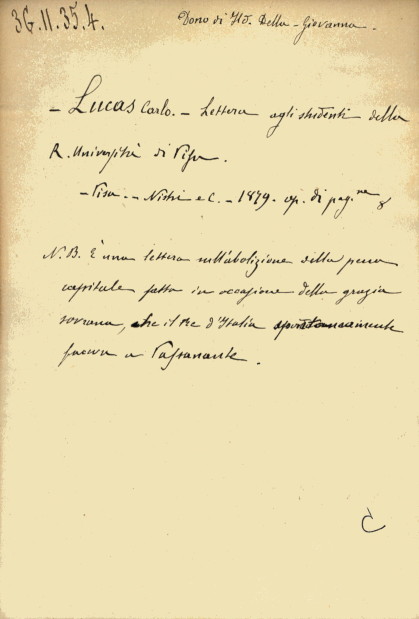 36.11.35.4.
Dono di Ild. Della-Giovanna.
- Lucas Carlo. - Lettera agli studenti della
R. Università di Pisa.
- Pisa. - Nistri e C. - 1879. op. di pag.ne 8
N.B. È una lettera sull'abolizione della pena
capitale fatta in occasione della grazia
sovrana, che il Re d'Italia spontaneamente
faceva a Passanante.
C